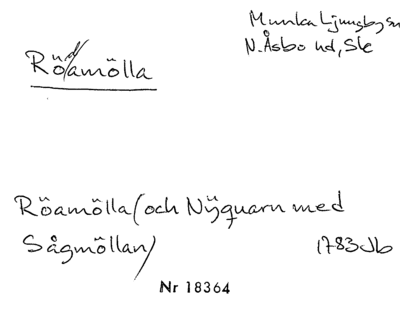 Munka Ljungby sn
N. Åsbo hd, Skå
Rödamölla
Röamölla (och Nÿquarn med
Sågmöllan)
1783 Jb
Nr 18364